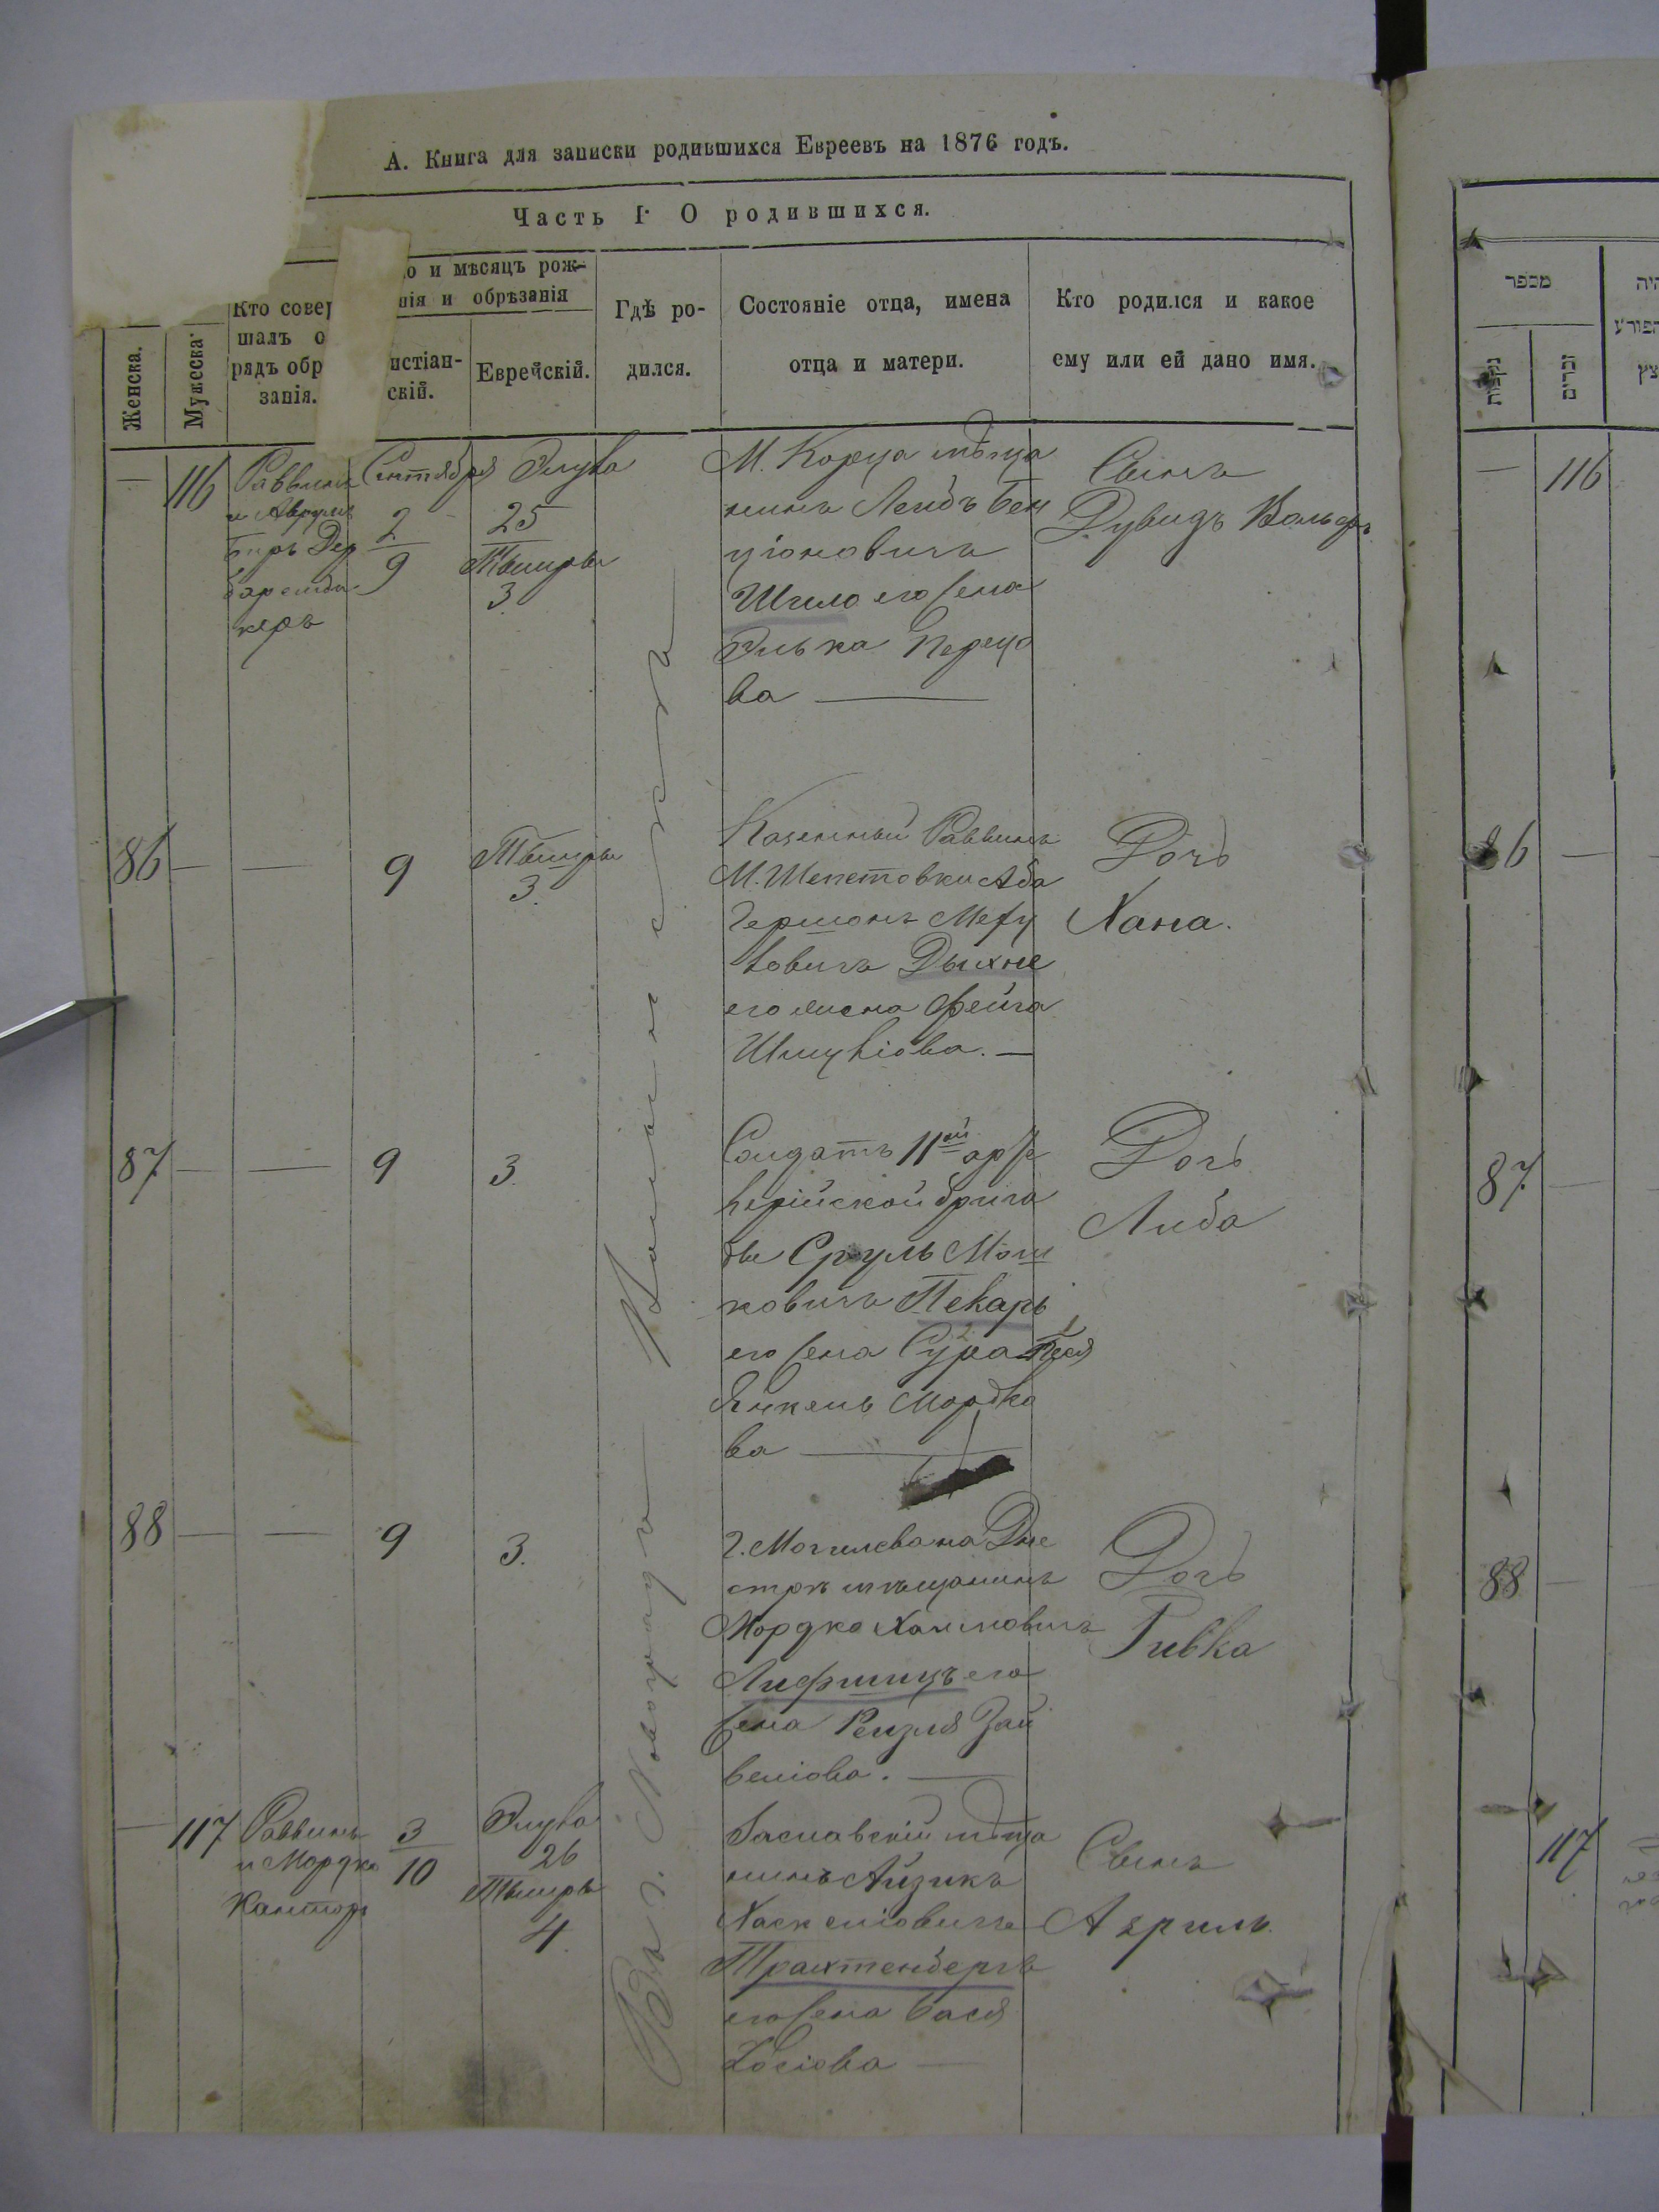 А. Книга для записки родившихся Евреевъ на 1876 годъ.
Часть I. О родившихся.
Женска.
Мужска.
Кто совер
шалъ о
рядъ обр
занія.
о и мѣсяцъ рож-
нія и обрѣзанія
истіан-
скій.
Еврейскій.
Гдѣ ро-
дился.
Состояніе отца, имена
отца и матери.
Кто родился и какое
ему или ей дано имя.
Въ г. Новоград
— 116
Раввинъ
и Аврумъ
Беръ Дер
Сентября
2
9
Элула
25
Тышры
3.
М. Корца мѣща
нинъ Лейбъ Бен
ціоновичъ
Шило его жена
Элька Перецо
ва —
Сынъ
Дувидъ Вольфъ
86 — — 9
Тышры
3.
Казенный Раввинъ
М. Шепетовки Аба
Гершонъ Мешу
ловичъ Дыхне
его жена Фейга
Шмулiова. —
Дочь
Хана.
87 — — 9 3.
Солдатъ 11ой арти
лерійской брига
ды Сруль Мош
ковичъ Пекарь
его жена Сура Песя
Янкель Мордко
ва —
Дочь
Либа
88 — — 9 3.
г. Могилева на Дне
стрѣ мѣщанинъ
Мордко Хаимовичъ
Лифшицъ его
жена Рейзля Зай
веліова. —
Дочь
Ривка
— 117
Раввинъ
и Мордко
Канторъ
3
10
Элула
26
Тышры
4.
Заславскій мѣща
нинъ Айзикъ
Хаскеліовичъ
Трахтенбергъ
его жена Бася
Іосіова —
Сынъ
Азриль.
מספר
נקבות
זכרים
— 116
86 —
87. —
88 —
117